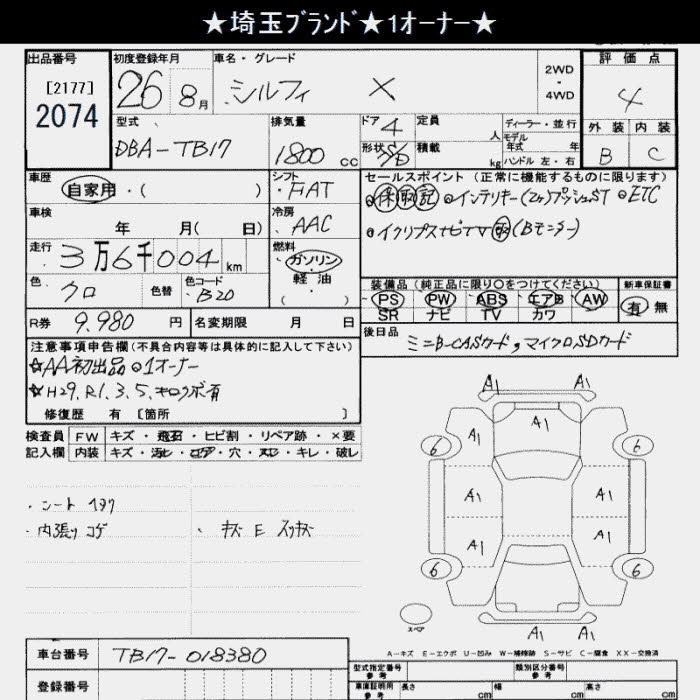 ★埼玉ﾌﾞﾗﾝﾄﾞ★1オーナー★
出品番号 初度登録年月 車名・グレード 評価点
[2177] 2074 26 8月 シルフィ X 2WD・4WD 4
型式 排気量 ドア 4 定員 人 ディーラー・並行 外装 内装
モデル年式 年
DBA-TB17 1800 cc 形状 S/D 積載 kg ハンドル 左・右 B C
車歴 シフト セールスポイント (正常に機能するものに限ります)
自家用・( ) FAT ◎保取記 ◎インテリキー(2ヶ)プッシュST ◎ETC
車検 冷房
年 月( 日) AAC ◎クリプスナビTV取(Bモニター)
走行 燃料
3万6千004km ガソリン
軽油
( ・ )
色 色替 色コード 装備品 (純正品に限り○をつけてください) 新車保証書
クロ B20 PS PW ABS エアB AW 有 無
SR ナビ TV カワ
R券 9.980 円 名変期限 月 日 後日品
ミニB-CASカード,マイクロSDカード
注意事項申告欄(不具合内容等は具体的に記入して下さい)
☆AA初出品 ◎1オーナー
☆H29,R1,3,5,キロクボ有
修復歴 有 [箇所 ]
検査員 FW キズ・飛石・ヒビ割・リペア跡・×要
記入欄 内装 キズ・汚レ・コゲ・穴・スレ・キレ・破レ
・シート
・内張り コゲ ・ キズ E スリキズ
A1 A1
A1 A1
6 6
A1 A1
A1 A1
6 6
スペア
A1 A1
A-キズ E-エクボ U-凹み W-補修跡 S-サビ C-腐食 XX-交換済
車台番号 TB17-018380
型式指定番号 参考 類別区分番号 参考
登録番号 車庫証明用 参考 長さ cm 幅 cm 高さ cm